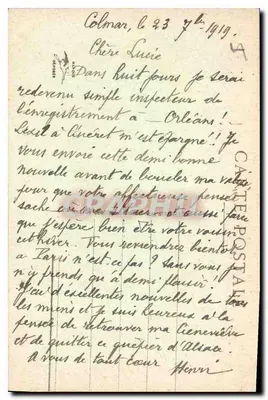 Colmar, le 23 7bre 1919.
Chère Lucie
Dans huit jours je serai
redevenu simple inspecteur de
l'enregistrement à — Orléans!
m'est épargné!! Je
vous envoie cette demi bonne
nouvelle avant de boucler ma
pour que votre affectueuse pensée
sache
que j'espère bien être votre voisin
cet hiver. Vous reviendrez bientôt
à Paris n'est-ce pas? sans vous je
n'y prends qu'à demi plaisir!
d'excellentes nouvelles de tous
les miens et je suis heureux à la
pensée de retrouver ma Geneviève
et de quitter ce guêpier d'Alsace.
A vous de tout cœur
Henri
CARTE POSTALE